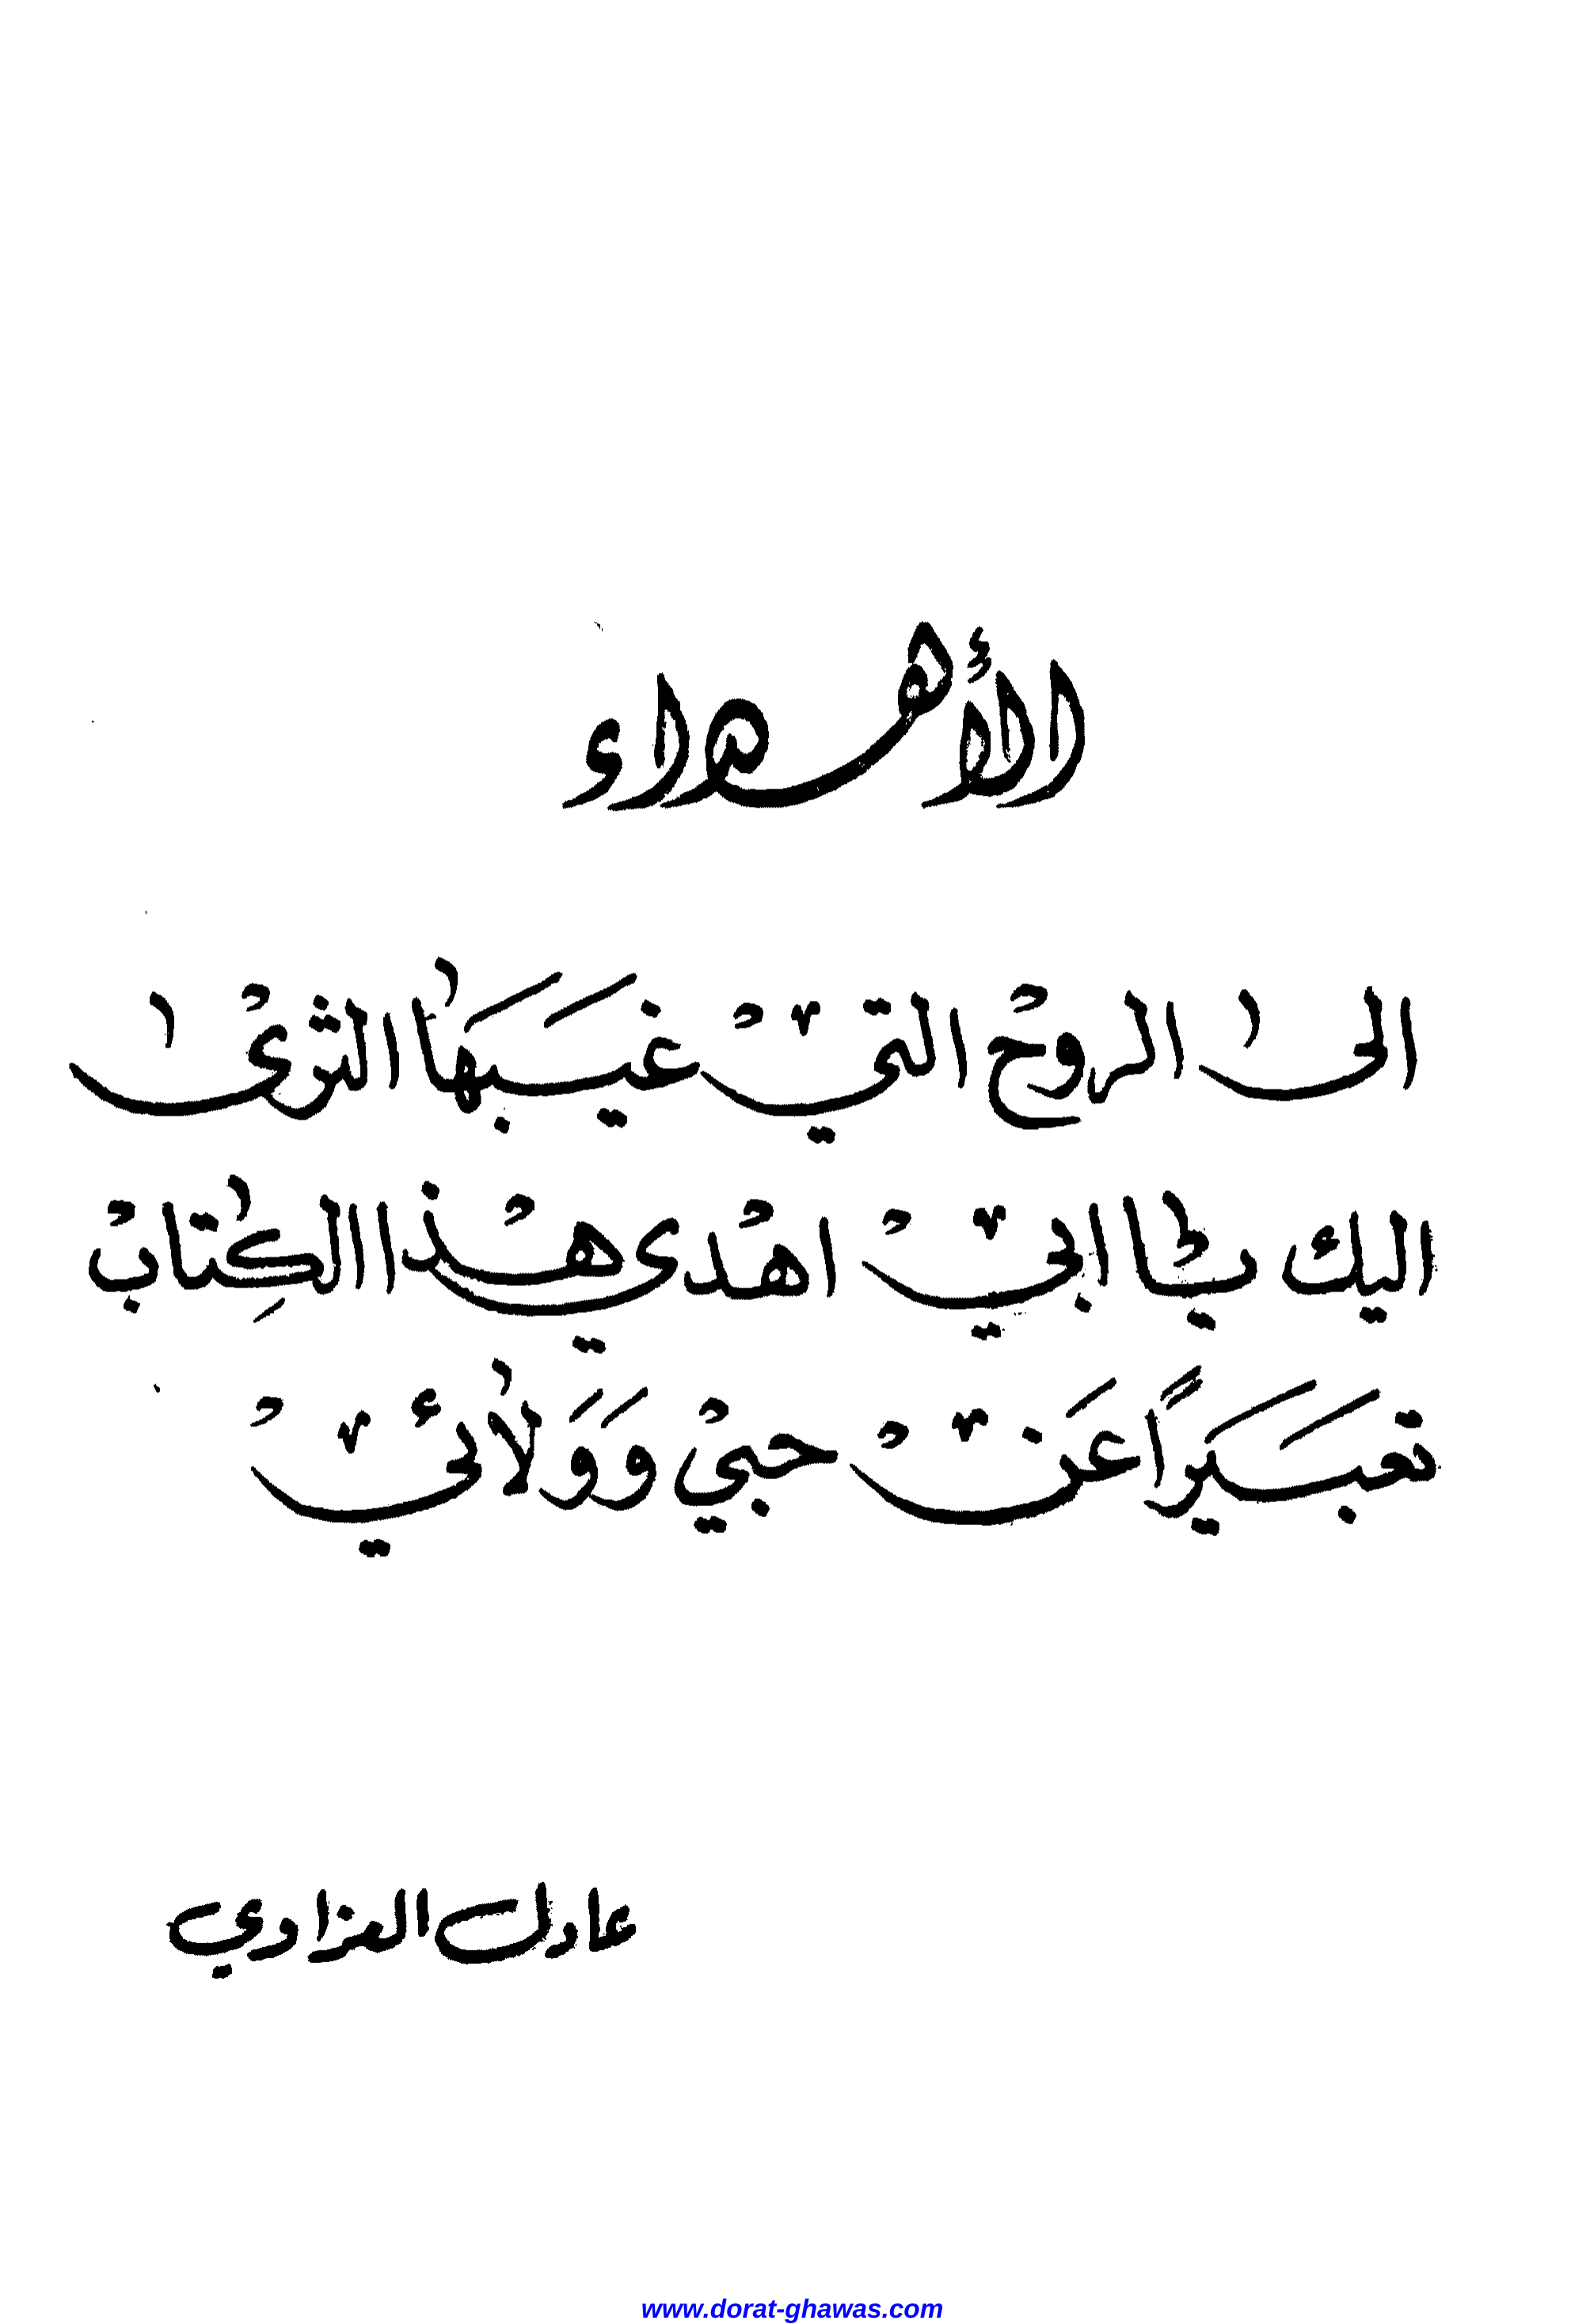 الأهداء
الى الروح التي غيبها الثرى
اليك يا ابي اهدي هذا الكتاب
تعبيراً عن حبي وولائي
عادل العزاوي
www.dorat-ghawas.com